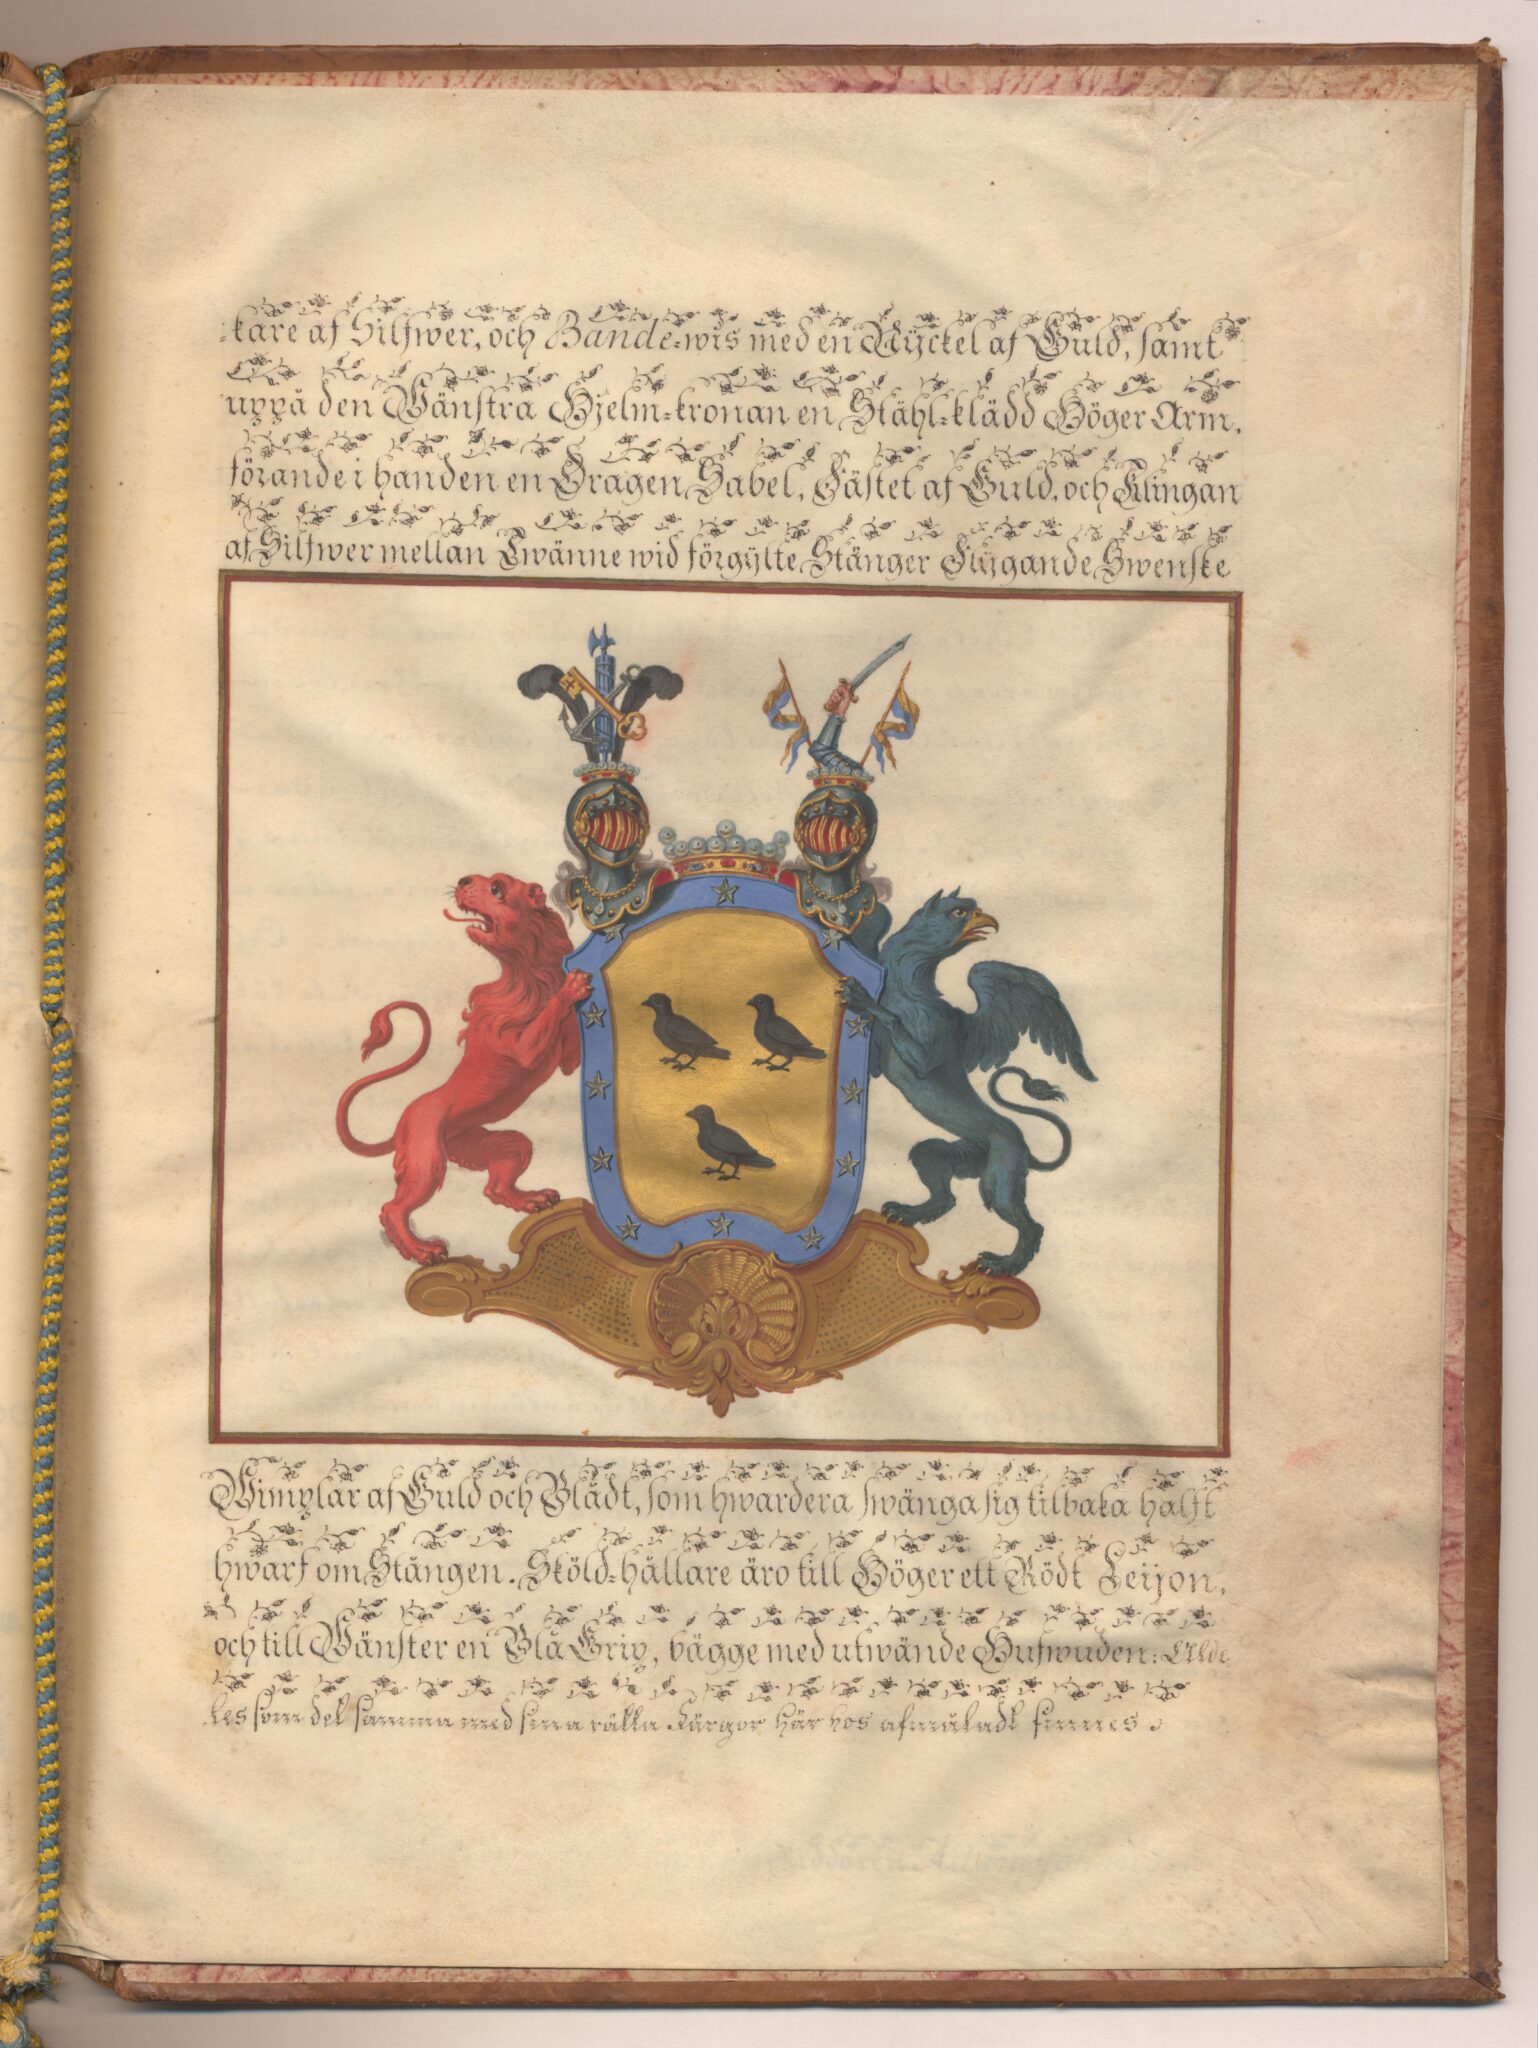 :kare af Silfwer, och Bande=wis med en Nyckel af Guld, samt
uppå den Wänstra Hjelm=kronan en Stähl=klädd Höger Arm,
förande i handen en Dragen Sabel, Fästet af Guld, och Klingan
af Silfwer mellan Twänne wid förgylte Stänger Flygande Swenske
Wimplar af Guld och Blådt, som hwardera swänga sig tilbaka halft
hwarf om Stången. Sköld=hållare äro till Höger ett Rödt Leijon,
och till Wänster en Blå Grip, bägge med utwände Hufwuden: Alde
les som det samma med sina rätta Färgor här hos afmåladt finnes.